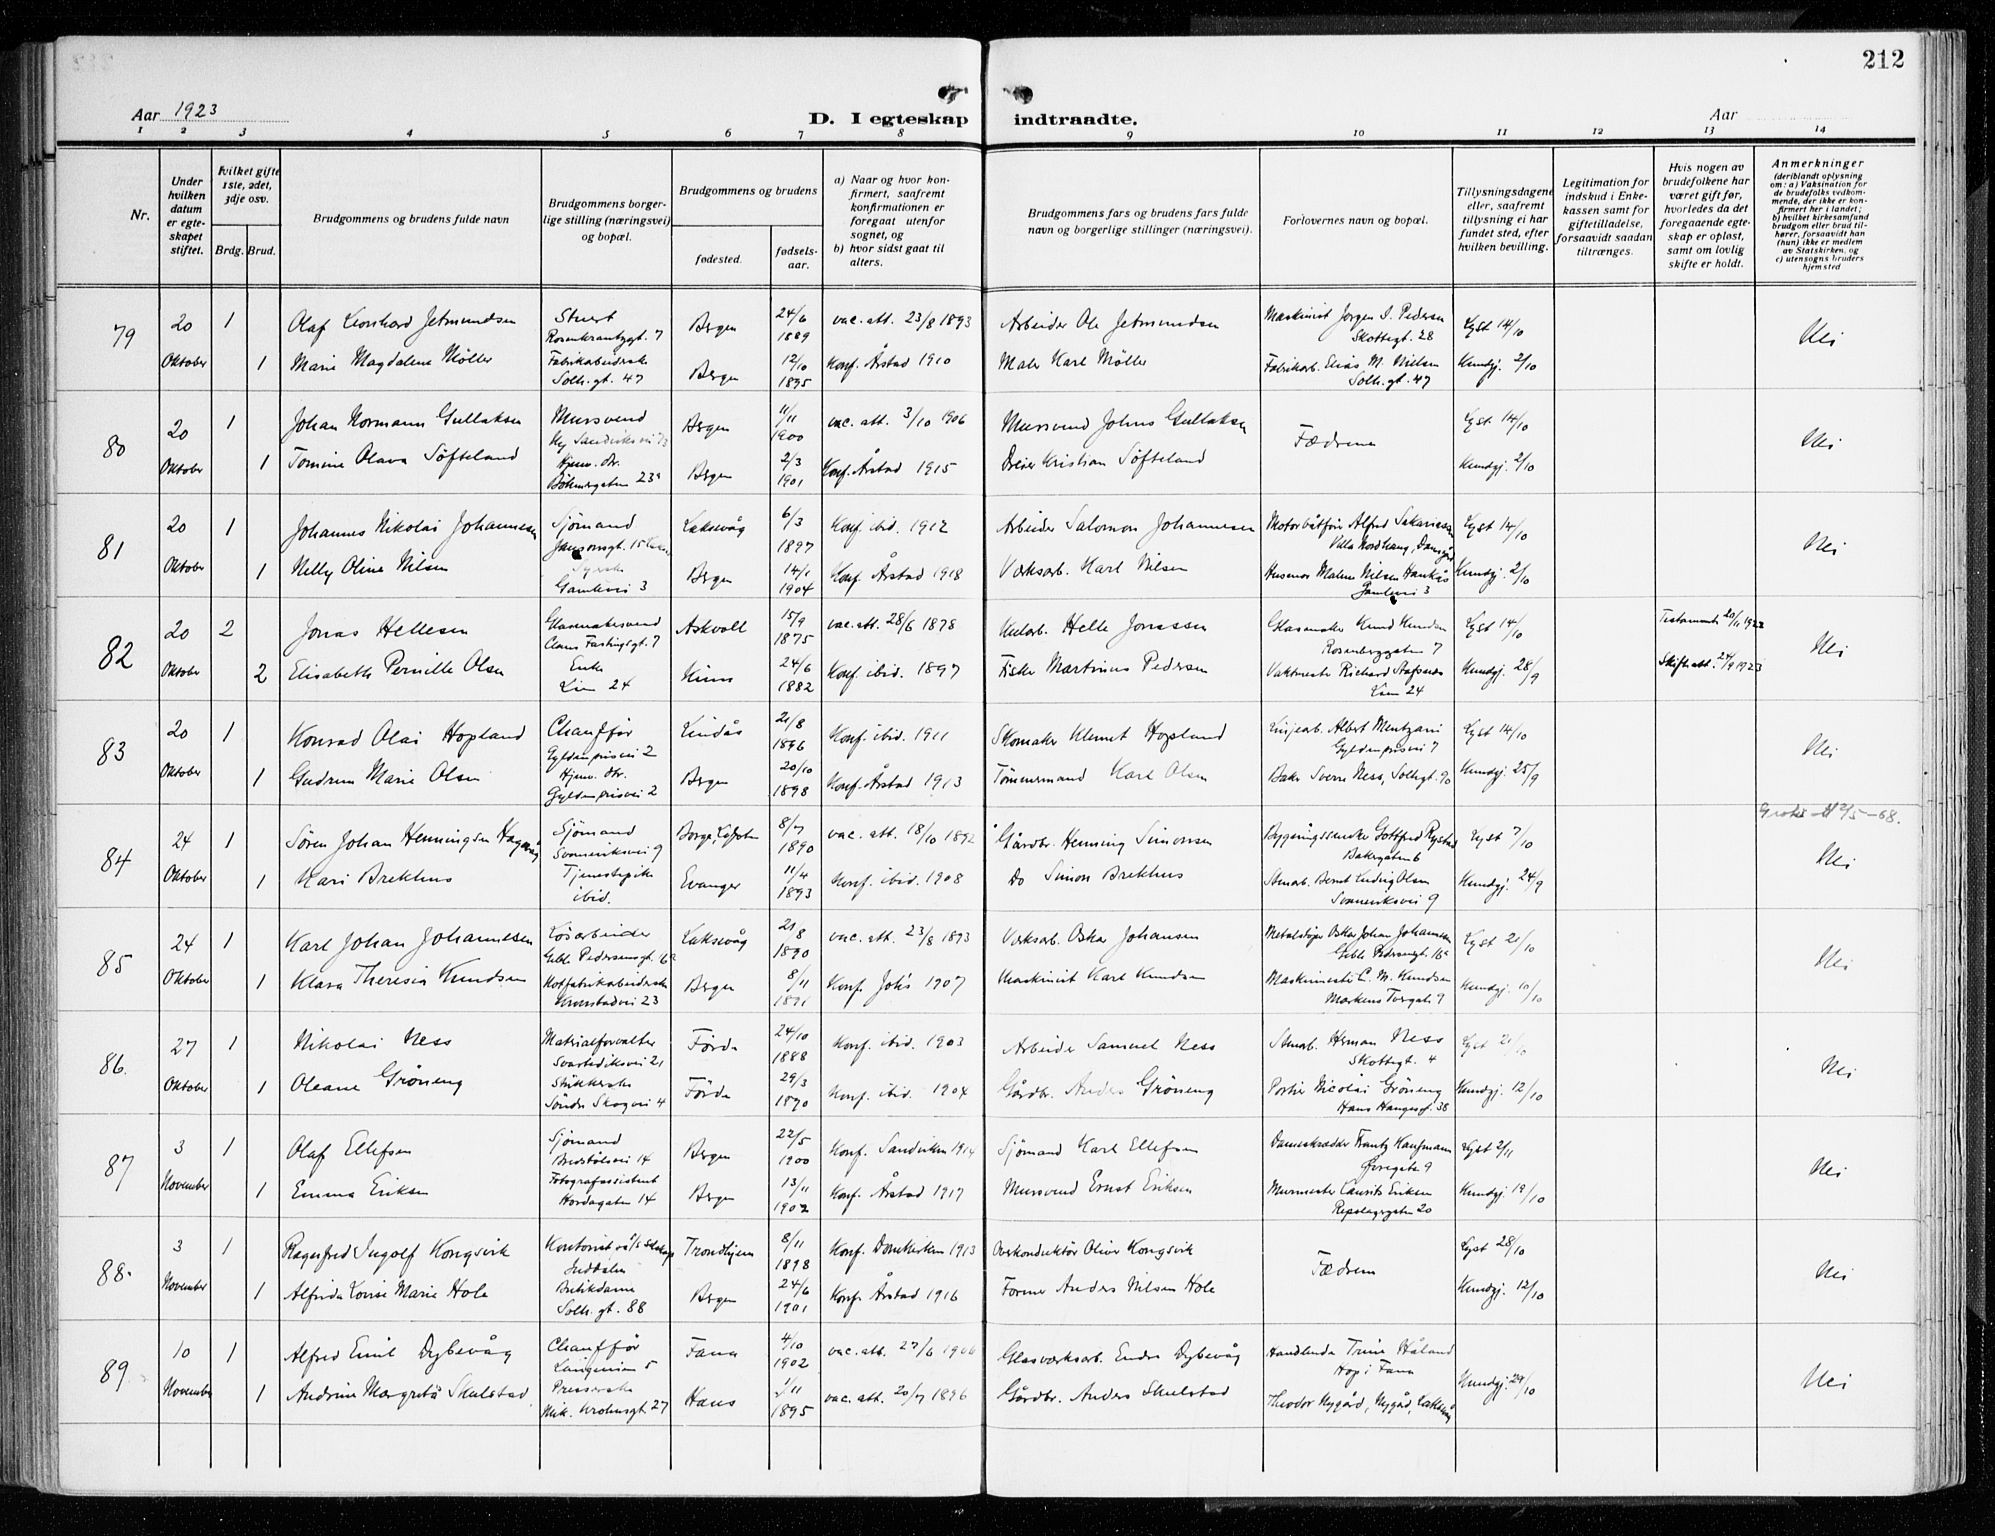 212
Aar 1923
D. I egteskap indtraadte.
Aar
1 2 3 4 5 6 7 8 9 10 11 12 13 14
Nr.
Under hvilken datum er egteskapet stiftet.
Hvilket gifte 1ste, 2det, 3dje osv.
Brdg. Brud.
Brudgommens og brudens fulde navn
Brudgommens borgerlige stilling (næringsvei) og bopæl.
Brudgommens og brudens
fødested.
fødselsaar.
a) Naar og hvor konfirmert, saafremt konfirmationen er foregaat utenfor sognet, og
b) hvor sidst gaat til alters.
Brudgommens fars og brudens fars fulde navn og borgerlige stillinger (næringsvei).
Forlovernes navn og bopæl.
Tillysningsdagene eller, saafremt tillysning ei har fundet sted, efter hvilken bevilling.
Legitimation for indskud i Enkekassen samt for giftetilladelse, forsaavidt saadan tiltrænges.
Hvis nogen av brudefolkene har været gift før, hvorledes da det foregaaende egteskap er opløst, samt om lovlig skifte er holdt.
Anmerkninger
(deriblandt oplysning om: a) Vaksination for de brudefolks vedkommende, der ikke er konfirmert her i landet; b) hvilket kirkesamfund brudgom eller brud tilhører, forsaavidt han (hun) ikke er medlem av Statskirken, og c) utensogns bruders hjemsted
79 20 Oktober 1 Olaf Leonhard Jetmundsen Stuert Rosenkrantzgt. 7 Bergen 24/6 1889 vac. att. 23/8 1893 Arbeider Ole Jetmundsen Maskinist Jørgen S. Pedersen Skottegt. 28 Lyst 14/10 Nei
1 Marie Magdalene Møller Fabrikarbeiderske Solh.gt. 47 Bergen 12/10 1895 Konf. Årstad 1910 Maler Karl Møller Fabrikarb. Elias M. Nielsen Solh.gt. 47 Kundgj. 2/10
80 20 Oktober 1 Johan Normann Gullaksen Mursvend Bergen 11/11 1900 vac. att. 3/10 1906 Mursvend Johns Gullaksen Fædrene Lyst 14/10 Nei
1 Tomine Olava Søfteland Hjemv. dtr. 23a Bergen 2/3 1901 Konf. Årstad 1915 Dreier Kristian Søfteland Kundgj. 2/10
81 20 Oktober 1 Johannes Nikolai Johannesen Sjømand Laksevåg 6/3 1897 Konf. ibid. 1912 Arbeider Salomon Johannesen Motorbåtfører Alfred Sakariassen Villa Nordhaug, Damsgård Lyst 14/10 Nei
1 Nelly Oline Nilsen Syerske Gamlevei 3 Bergen 14/1 1904 Konf. Årstad 1918 Verksarb. Karl Nilsen Malene Nilsen Gamlevei 3 Kundgj. 2/10
82 20 Oktober 2 Jonas Hellesen Glasmakersvend Claus Fastingsgt. 7 Askvoll 15/9 1875 vac. att. 28/6 1878 Helle Jonassen Glasmaker Knud Knudsen Rosenberggaten 7 Lyst 14/10 Testamente 20/11 1922 Nei
2 Elisabeth Pernille Olsen Enke Lien 24 Kinn 24/6 1882 Konf. ibid. 1897 Fisker Martinus Pedersen Vaktmester Richard Lien 24 Kundgj. 28/9 Skifteatt. 24/9 1923
83 20 Oktober 1 Konrad Olai Hopland Chauffør Gyldenprisvei 2 Lindås 21/8 1896 Konf. ibid. 1911 Skomaker Klemet Hopland Linjearb. Albert Mentzoni Gyldenprisvei 7 Lyst 14/10 Nei
1 Gudrun Marie Olsen Hjemv. dtr. Gyldenprisvei 2 Bergen 20/10 1898 Konf. Årstad 1913 Tømmermand Karl Olsen Baker Sverre Ness, Solh.gt. 90 Kundgj. 25/9
84 24 Oktober 1 Søren Johan Henningsen Hagevåg Sjømand Svaneviksvei 9 Borge, Lofoten 8/7 1890 vac. att. 18/10 1892 Gårdbr. Henning Simonsen Bygningssnedker Gottfred Rystad Bakergaten 6 Lyst 7/10 Nei
1 Kari Brekhus Tjenestepike ibid. Evanger 11/4 1893 Konf. ibid. 1908 Do Simon Brekhus Stenarb. Bernt Ludvig Olsen Svaneviksvei 9 Kundgj. 24/9
85 24 Oktober 1 Karl Johan Johannesen Løsarbeider Gible Pedersensgt. 16a Laksevåg 21/8 1890 vac. att. 23/8 1893 Verksarb. Oskar Johansen Metalstøper Oskar Johan Johannesen Gible Pedersensgt. 16a Lyst 21/10 Nei
1 Klara Theresia Knudsen Kronstadvei 23 Bergen 8/11 1891 Konf. Johs 1907 Maskinist Karl Knudsen Maskinmester C. M. Knudsen Markens Torvgate 7 Kundgj. 10/10
86. 27 Oktober 1 Nikolai Ness Matrialforvalter Svartediksvei 21 Førde 24/10 1888 Konf. ibid. 1903 Arbeider Samuel Ness Stenarb. Herman Ness Skottegt. 4 Lyst 21/10 Nei
1 Oleane Grøneng Strikkerske Søndre Skogvei 4 Førde 29/3 1890 Konf. ibid. 1904 Gårdbr. Anders Grøneng Portier Nicolai Grøneng Hans Haugesgt. 38 Kundgj. 12/10
87 3 November 1 Olaf Ellefsen Sjømand Bredstølsvei 14 Bergen 22/5 1900 Konf. Sandviken 1914 Sjømand Karl Ellefsen Dameskrædder Frantz Kaufmann Øvregaten 9 Lyst 2/11 Nei
1 Emma Eriksen Fotografassistent Hordagaten 14 Bergen 13/11 1902 Konf. Årstad 1917 Mursvend Ernst Eriksen Murmester Laurits Eriksen Repslagergaten 20 Kundgj. 19/10
88. 3 November 1 Ragnfred Ingolf Kongsvik Kontorist Trondhjem 8/11 1898 Konf. Domkirken 1913 Overkonduktør Oliver Kongsvik Fædrene Lyst 28/10 Nei
1 Alfrida Lovise Marie Hole Butikdame Solh.gt. 88 Bergen 24/6 1901 Konf. Årstad 1916 Former Anders Nilsen Hole Kundgj. 12/10
89 10 November 1 Alfred Emil Dybevåg Chauffør Langeveien 5 Fana 4/10 1902 vac. att. 27/6 1906 Glasverksarb. Endre Dybevåg Handlende Trine Håland Hop i Fana Kundgj. 29/10 Nei
1 Andrine Margretha Skulstad Presserske Mik. Krohnsgt. 27 Haus 1/11 1895 vac. att. 20/7 1896 Gårdbr. Anders Skulstad Theodor Nygård, Nygård, Laksevåg